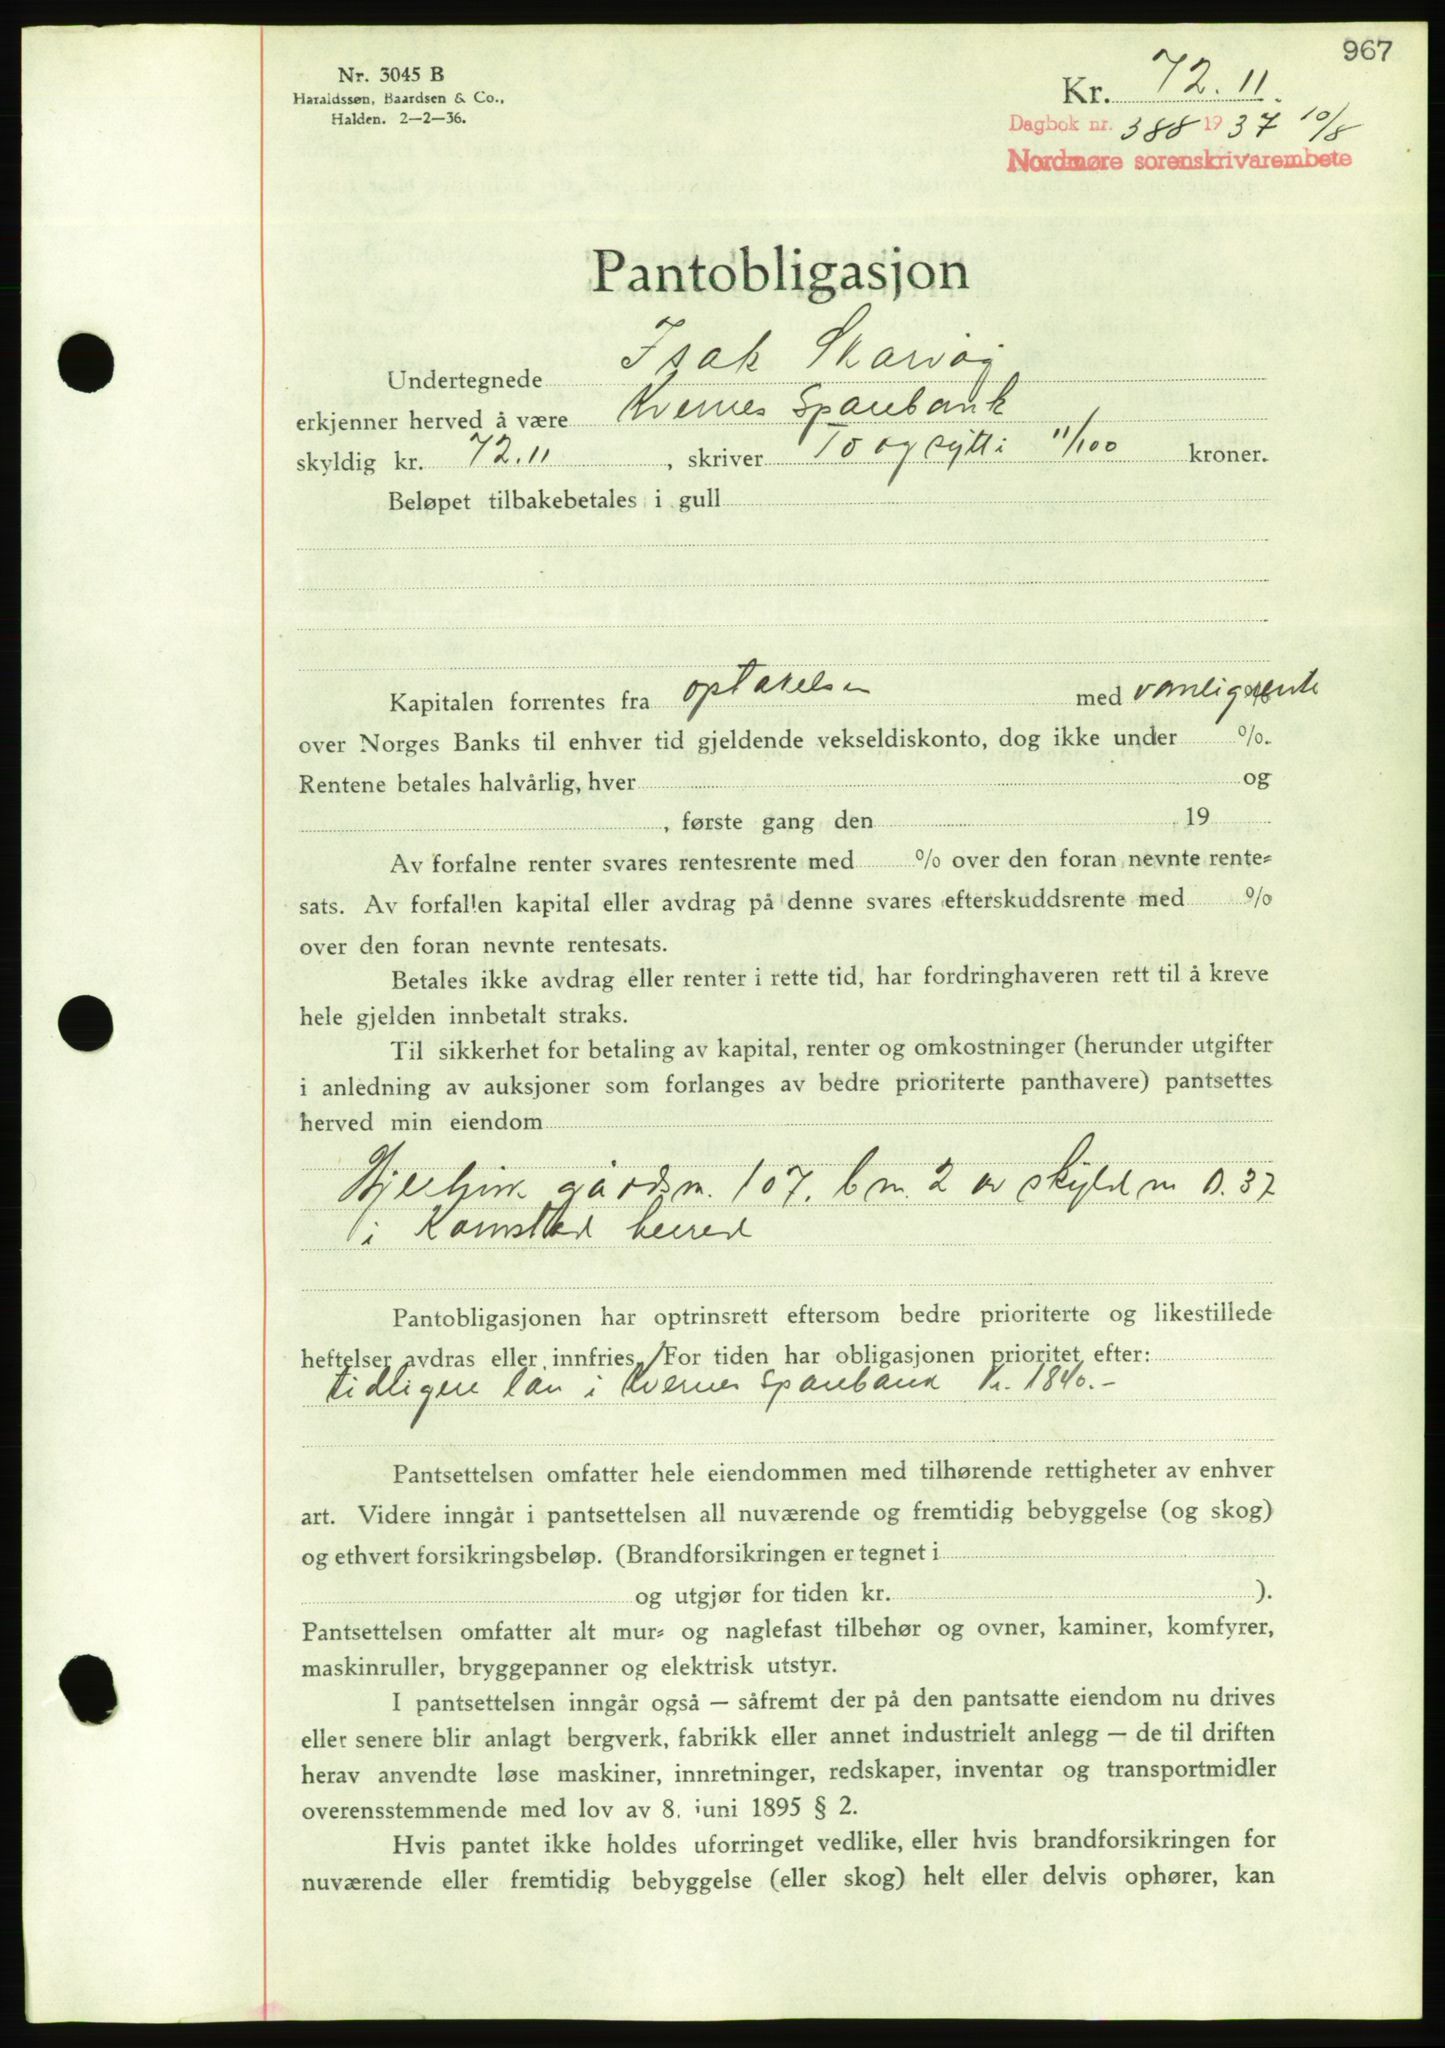 967
Nr. 3045 B
Haraldssøn, Baardsen & Co.,
Halden. 2-2-36.
Kr. 72.11.
Dagbok nr. 388 1937 10/8
Nordmøre sorenskrivarembete
Pantobligasjon
Undertegnede Isak Skarvøg
erkjenner herved å være Kvernes Sparebank
skyldig kr. 72.11, skriver To og sytti 11/100 kroner.
Beløpet tilbakebetales i gull
Kapitalen forrentes fra optakelsen med vanlig rente
over Norges Banks til enhver tid gjeldende vekseldiskonto, dog ikke under %.
Rentene betales halvårlig, hver og
, første gang den 19
Av forfalne renter svares rentesrente med % over den foran nevnte rente=
sats. Av forfallen kapital eller avdrag på denne svares efterskuddsrente med %
over den foran nevnte rentesats.
Betales ikke avdrag eller renter i rette tid, har fordringhaveren rett til å kreve
hele gjelden innbetalt straks.
Til sikkerhet for betaling av kapital, renter og omkostninger (herunder utgifter
i anledning av auksjoner som forlanges av bedre prioriterte panthavere) pantsettes
herved min eiendom
gårdsn. 107. bn. 2 av skyld m 0.37
i Kornstad herred
Pantobligasjonen har optrinsrett eftersom bedre prioriterte og likestillede
heftelser avdras eller innfries. / For tiden har obligasjonen prioritet efter:
tidligere lån i Kvernes Sparebank kr. 1840.-
Pantsettelsen omfatter hele eiendommen med tilhørende rettigheter av enhver
art. Videre inngår i pantsettelsen all nuværende og fremtidig bebyggelse (og skog)
og ethvert forsikringsbeløp. (Brandforsikringen er tegnet i
og utgjør for tiden kr. ).
Pantsettelsen omfatter alt mur= og naglefast tilbehør og ovner, kaminer, komfyrer,
maskinruller, bryggepanner og elektrisk utstyr.
I pantsettelsen inngår også — såfremt der på den pantsatte eiendom nu drives
eller senere blir anlagt bergverk, fabrikk eller annet industrielt anlegg — de til driften
herav anvendte løse maskiner, innretninger, redskaper, inventar og transportmidler
overensstemmende med lov av 8. juni 1895 § 2.
Hvis pantet ikke holdes uforringet vedlike, eller hvis brandforsikringen for
nuværende eller fremtidig bebyggelse (eller skog) helt eller delvis ophører, kan